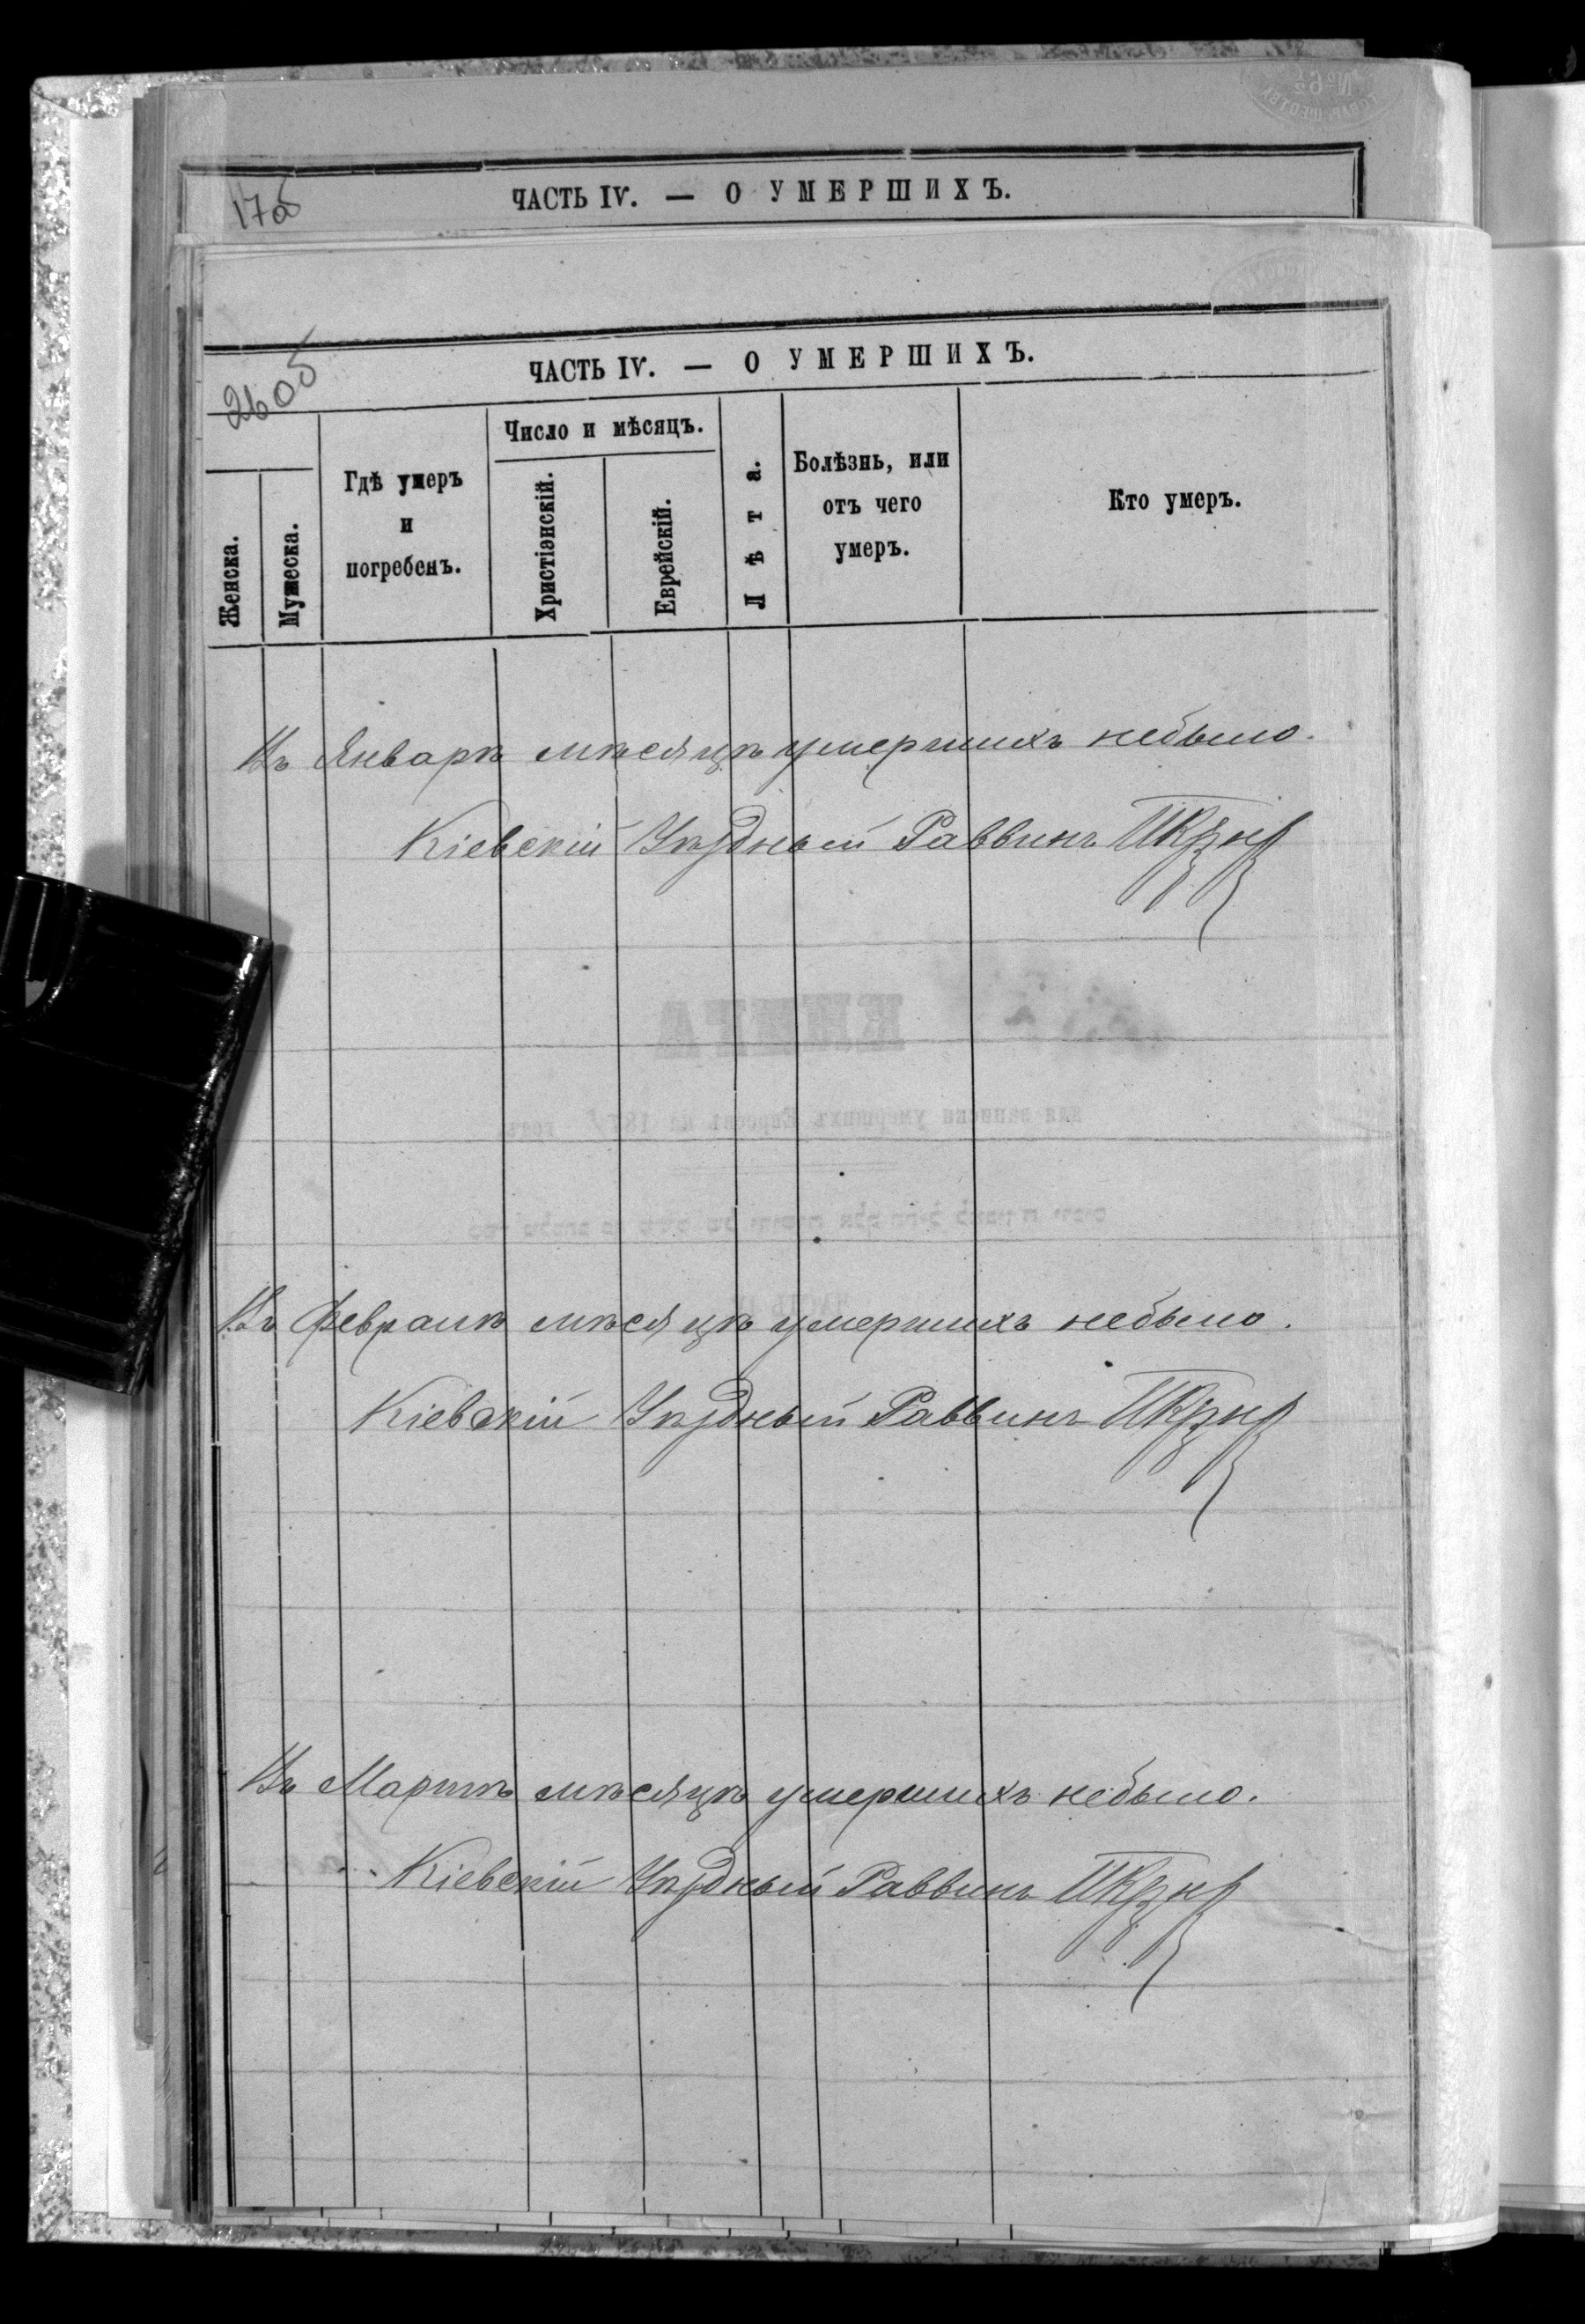 17об
ЧАСТЬ IV. — О УМЕРШИХЪ.
26об
ЧАСТЬ IV. — О УМЕРШИХЪ.
Женска.
Мужеска.
Гдѣ умеръ
и
погребенъ.
Число и мѣсяцъ.
Христіэнскій.
Еврейскій.
Лѣта.
Болѣзнь, или
отъ чего
умеръ.
Кто умеръ.
Въ Январѣ мѣсяцѣ умершихъ небыло.
Кіевскій Уѣздный Раввинъ
КНИГА
для записки умершихъ Евреевъ на 187 годъ
Въ Февралѣ мѣсяцѣ умершихъ небыло.
Кіевскій Уѣздный Раввинъ
Въ Мартѣ мѣсяцѣ умершихъ небыло.
Кіевскій Уѣздный Раввинъ